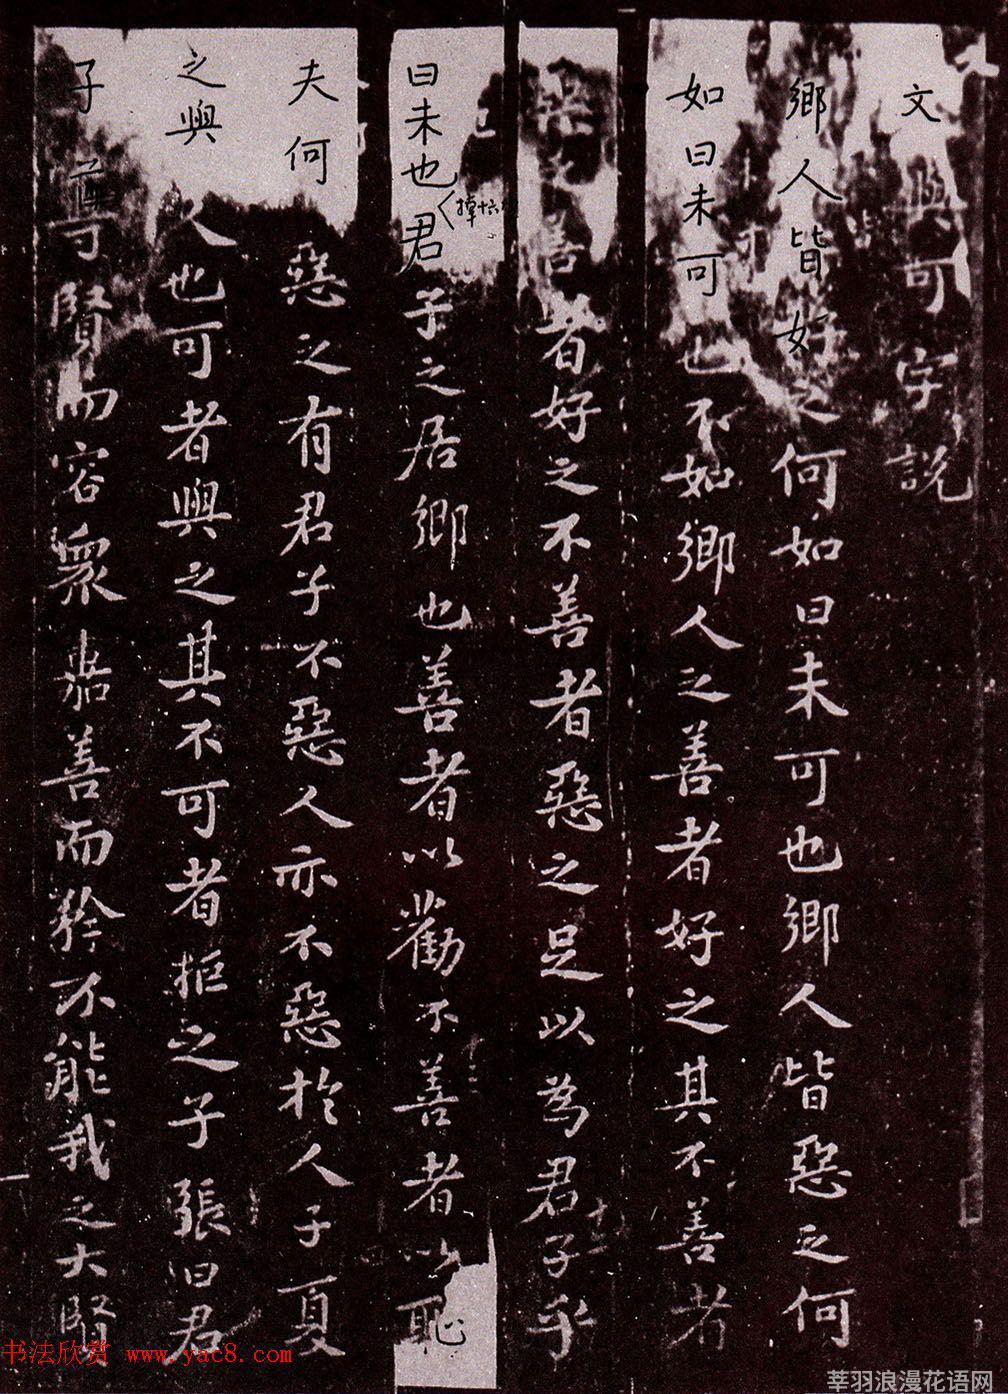 文與可字說
鄉人皆好之何如曰未可也鄉人皆惡之何
如曰未可也不如鄉人之善者好之其不善者
惡之善者好之不善者惡之足以為君子乎
曰未也君子之居鄉也善者以勸不善者以恥
掉十六
夫何惡之有君子不惡人亦不惡於人子夏
之與人也可者與之其不可者拒之子張曰君
子尊賢而容衆嘉善而矜不能我之大賢
书法欣赏 www.yac8.com
莘羽浪漫花语网